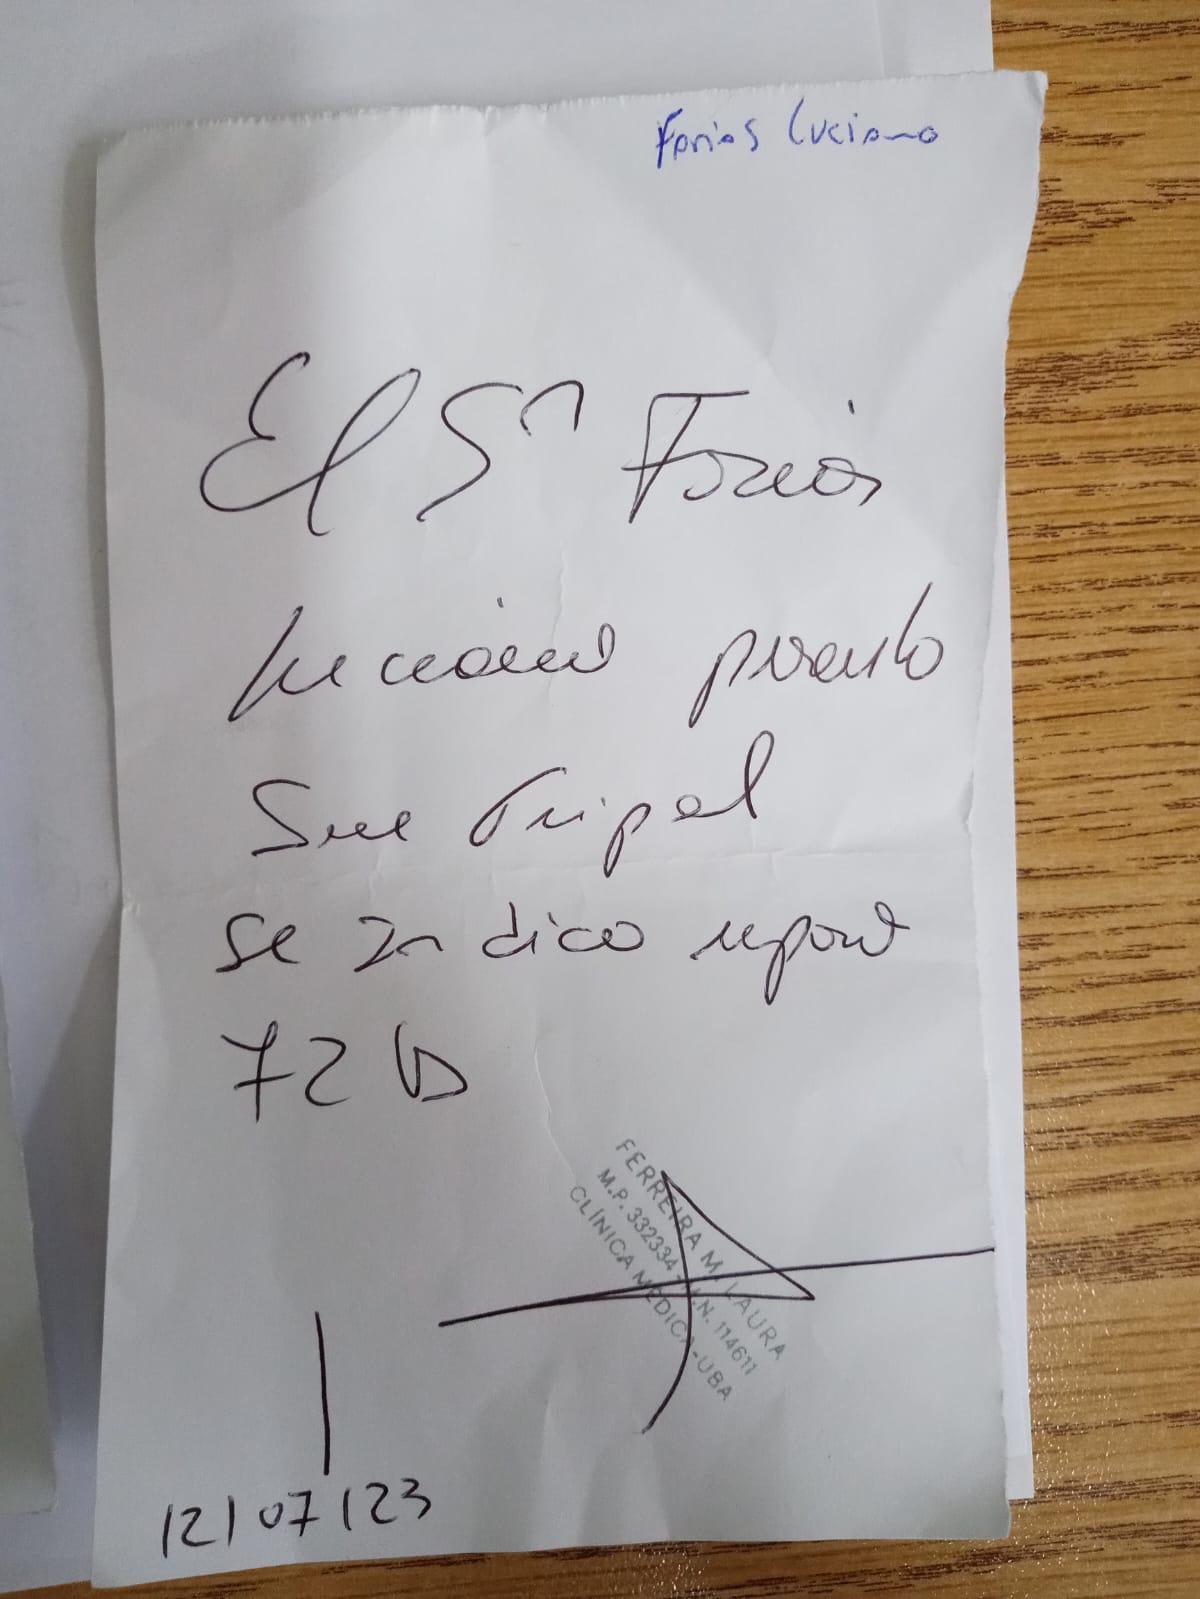 Farias Luciano
El Sr Farias
Luciano presento
Sme Gripal
se Indico reposo
72 hs
FERREIRA M. LAURA
M.P. 332334 - M.N. 114611
CLÍNICA MÉDICA-UBA
12/07/23